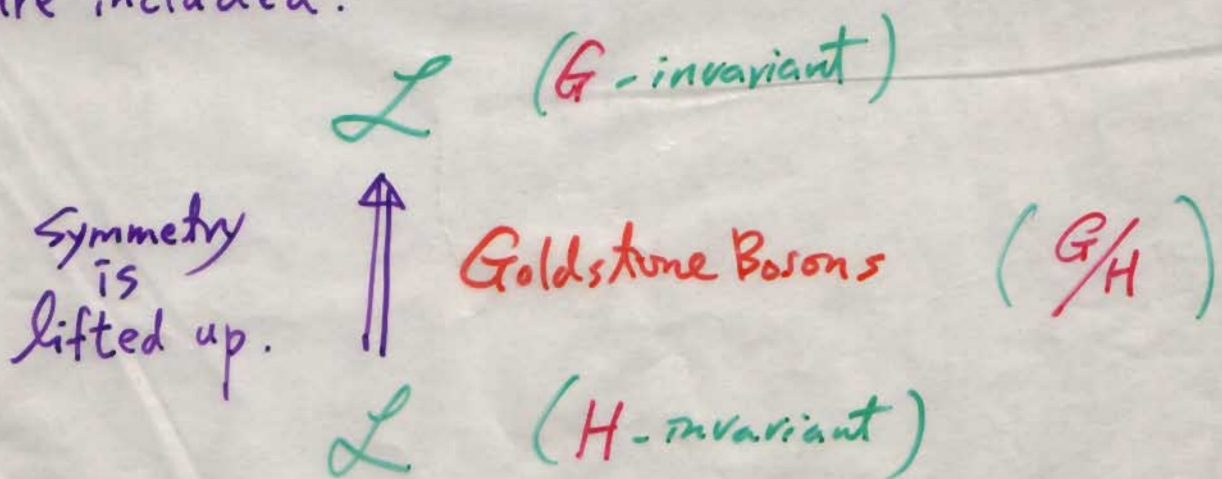 are included.
ℒ (G-invariant)
Symmetry
is
lifted up.
Goldstone Bosons (G/H)
ℒ (H-invariant)